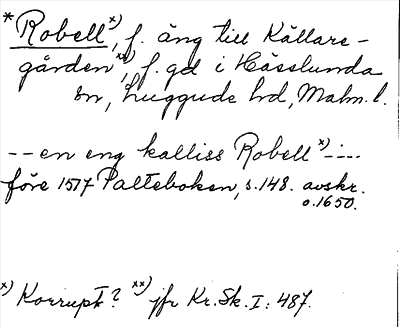 *Robell x), f. äng till Källare-
gården xx), f. gd i Hässlunda
sn, Luggude hd, Malm. l.
--en eng kalliss Robell x)-----
före 1517 Palteboken, s. 148. avskr.
o. 1650.
x) Korrupt? xx) jfr Kr. Sk. I: 487.